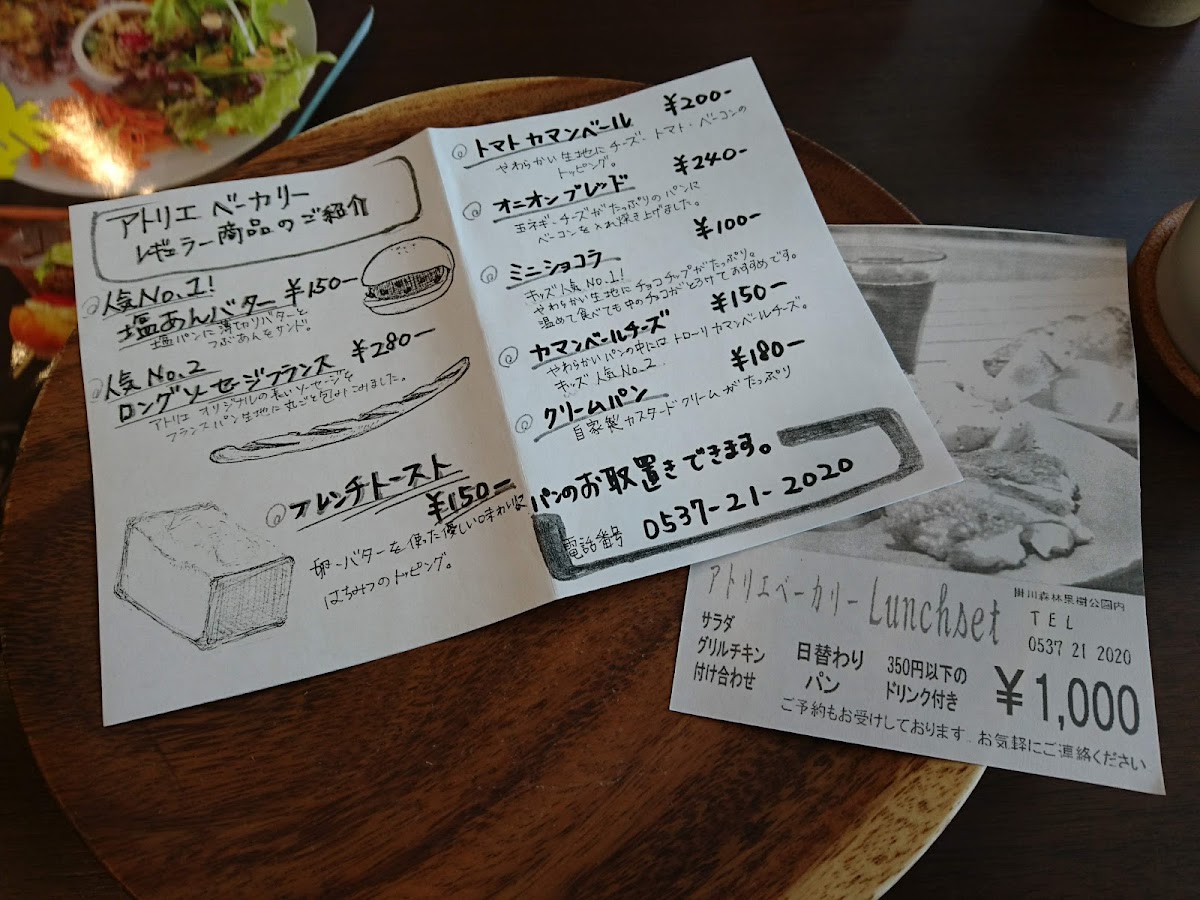 アトリエ ベーカリー
レギュラー商品のご紹介
人気No.1!
塩あんバター ¥150-
塩パンに薄切りバターと
つぶあんをサンド!
人気No.2 ¥280-
ロングソーセージフランス
アトリエ オリジナルの長いソーセージを
フランスパン生地に丸ごと包みこみました。
フレンチトースト
¥150-
卵-バターを使った優しい味わいに
はちみつのトッピング。
トマトカマンベール ¥200-
やわらかい生地にチーズ・トマト・ベーコンの
トッピング。
オニオンブレッド ¥240-
玉ネギ、チーズがたっぷりのパンに
ベーコンを入れ焼き上げました。
ミニショコラ ¥100-
キッズ人気NO.1!
やわらかい生地にチョコチップがたっぷり。
温めて食べても中のチョコがとろけておすすめです。
カマンベールチーズ ¥150-
やわらかいパンの中にはトローリカマンベールチーズ。
キッズ人気No.2
クリームパン ¥180-
自家製カスタードクリームがたっぷり
パンのお取置きできます。
電話番号 0537-21-2020
アトリエベーカリー Lunchset
掛川森林果樹公園内
TEL
0537 21 2020
サラダ
グリルチキン
付け合わせ
日替わり
パン
350円以下の
ドリンク付き
¥1,000
ご予約もお受けしております。お気軽にご連絡ください